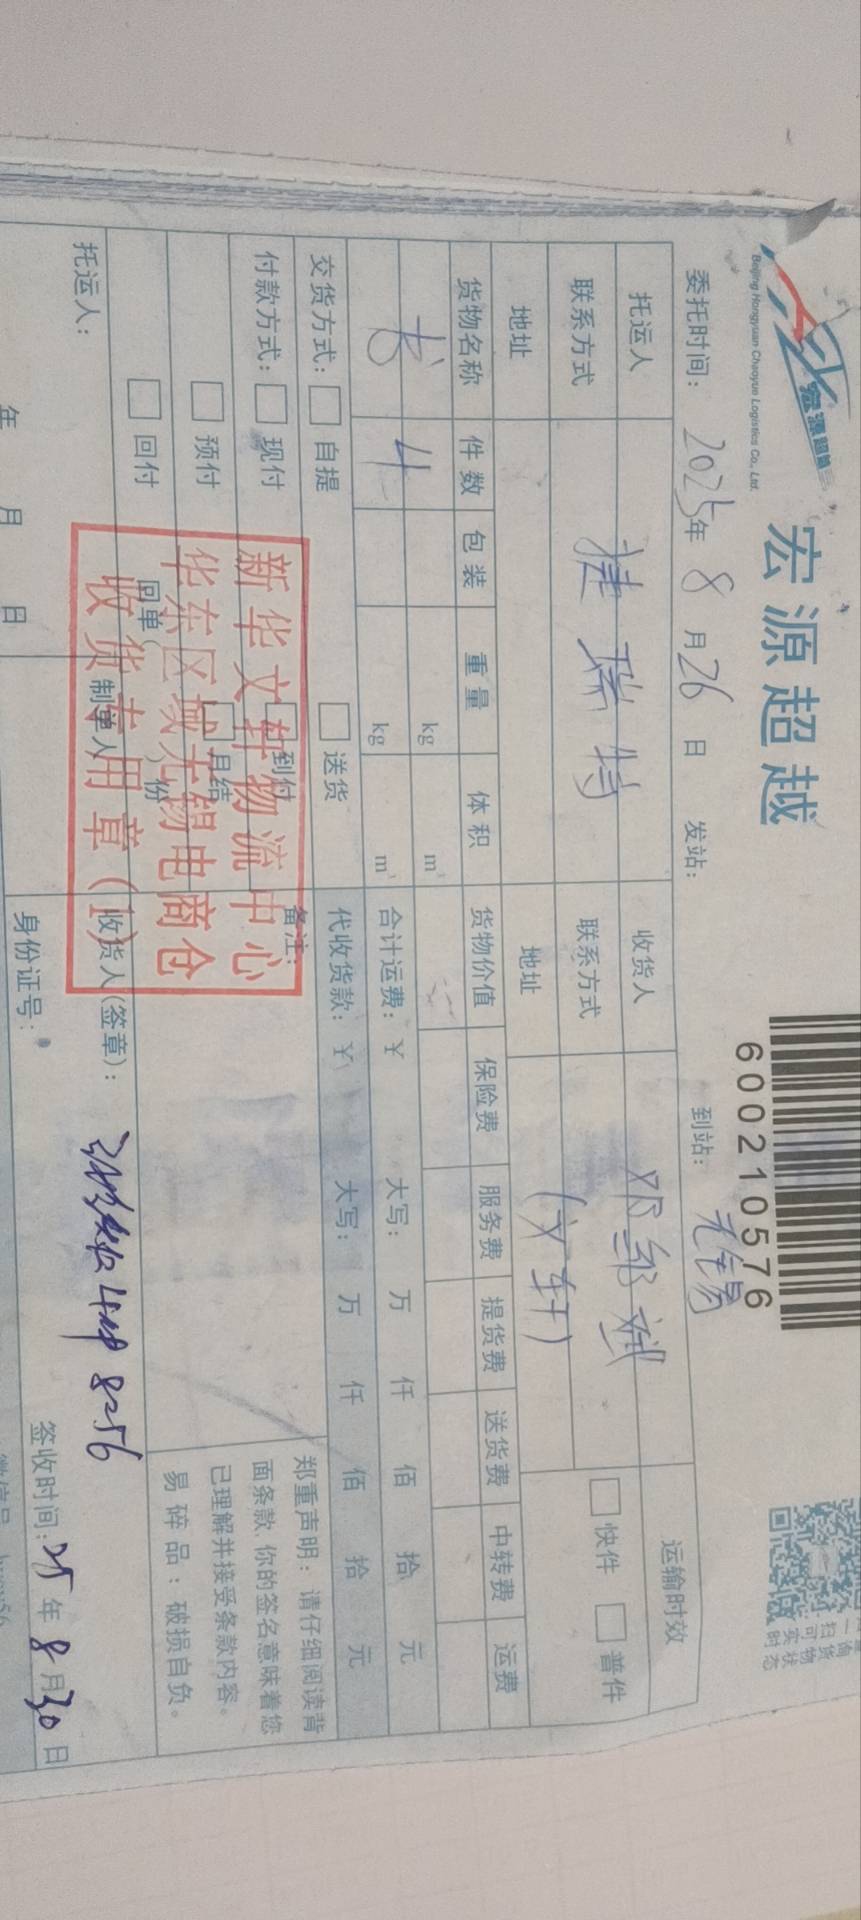 宏源超越
Beijing Hongyuan Chaoyue Logistics Co., Ltd.
宏源超越
600210576
委托时间: 2025年 8月26日 发站: 到站: 无锡
托运人 捷瑞特 收货人 运输时效
联系方式 联系方式 快件 普件
地址 地址 (文轩)
货物名称 件数 包装 重量 体积 货物价值 保险费 服务费 提货费 送货费 中转费 运费
书 4 kg m³
kg m³ 合计运费: ¥ 大写: 万 仟 佰 拾 元
交货方式: 自提 送货 代收货款: ¥ 大写: 万 仟 佰 拾 元
付款方式: 现付 到付 备注:
预付 月结
回付 回单 份
郑重声明: 请仔细阅读背
面条款,你的签名意味着您
已理解并接受条款内容。
易碎品: 破损自负。
新华文轩物流中心
华东区域无锡电商仓
收货专用章(1)
托运人: 制单人 收货人(签章): 8256
年 月 日 身份证号: 签收时间: 25年 8月30日